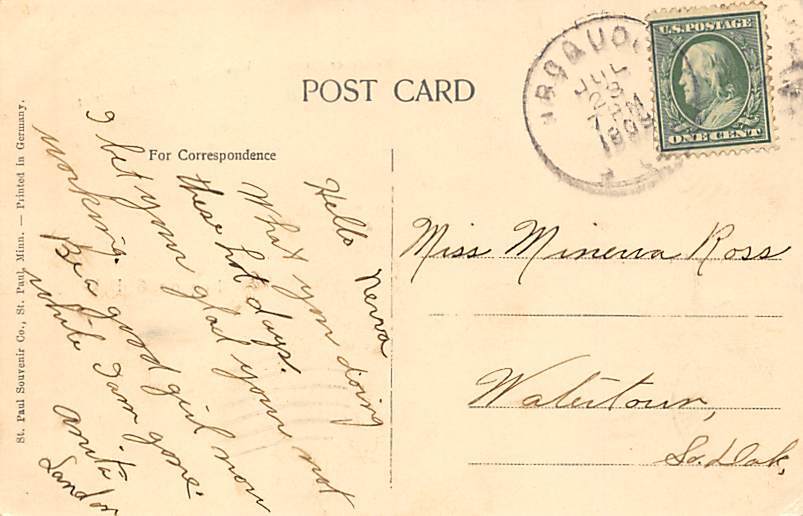 POST CARD
For Correspondence
St. Paul Souvenir Co., St. Paul, Minn. — Printed in Germany.
U.S. POSTAGE
ONE CENT
JUL
28
7 PM
Hello Nerva
What you doing
these hot days.
I bet your glad your not
working.
Be a good girl now
while I am gone.
Anita
Landon
Miss Minerva Ross
Watertown,
So. Dak,